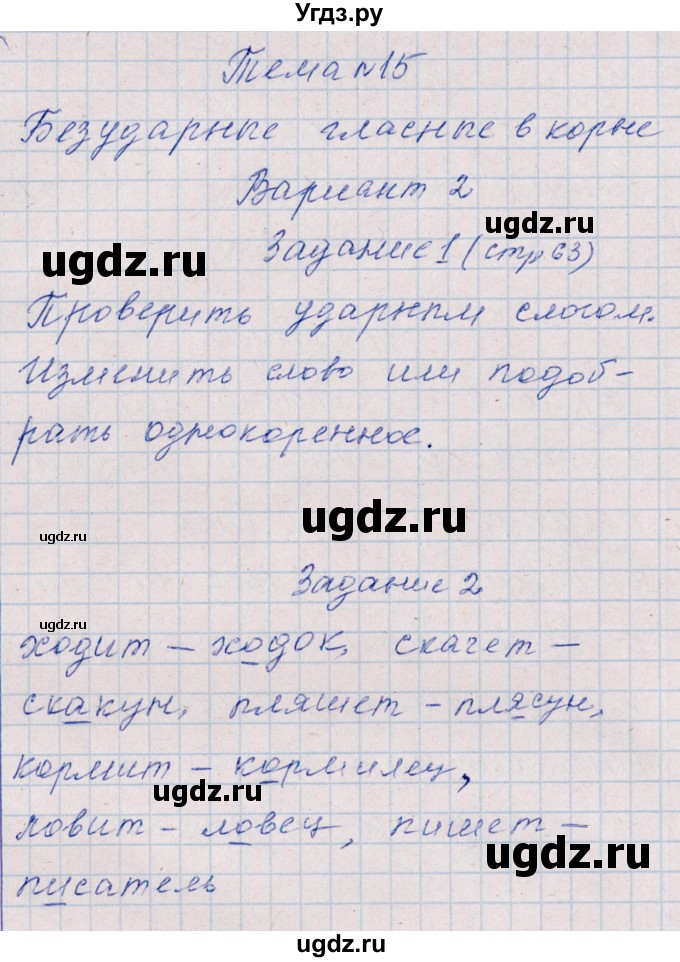 Угдз.ру
Тема №15
Безударные гласные в корне
Вариант 2
ugdz.ru
ugdz.ru
Задание 1 (стр 63)
Проверить ударным слогом.
Изменить слово или подоб-
рать однокоренное.
ugdz.ru
ugdz.ru
Задание 2
ugdz.ru
ходит - ходок, скачет -
скакун, пляшет - плясун,
кормит - кормилец,
ugdz.ru
ловит - ловец, пишет -
ugdz.ru
писатель
ugdz.ru